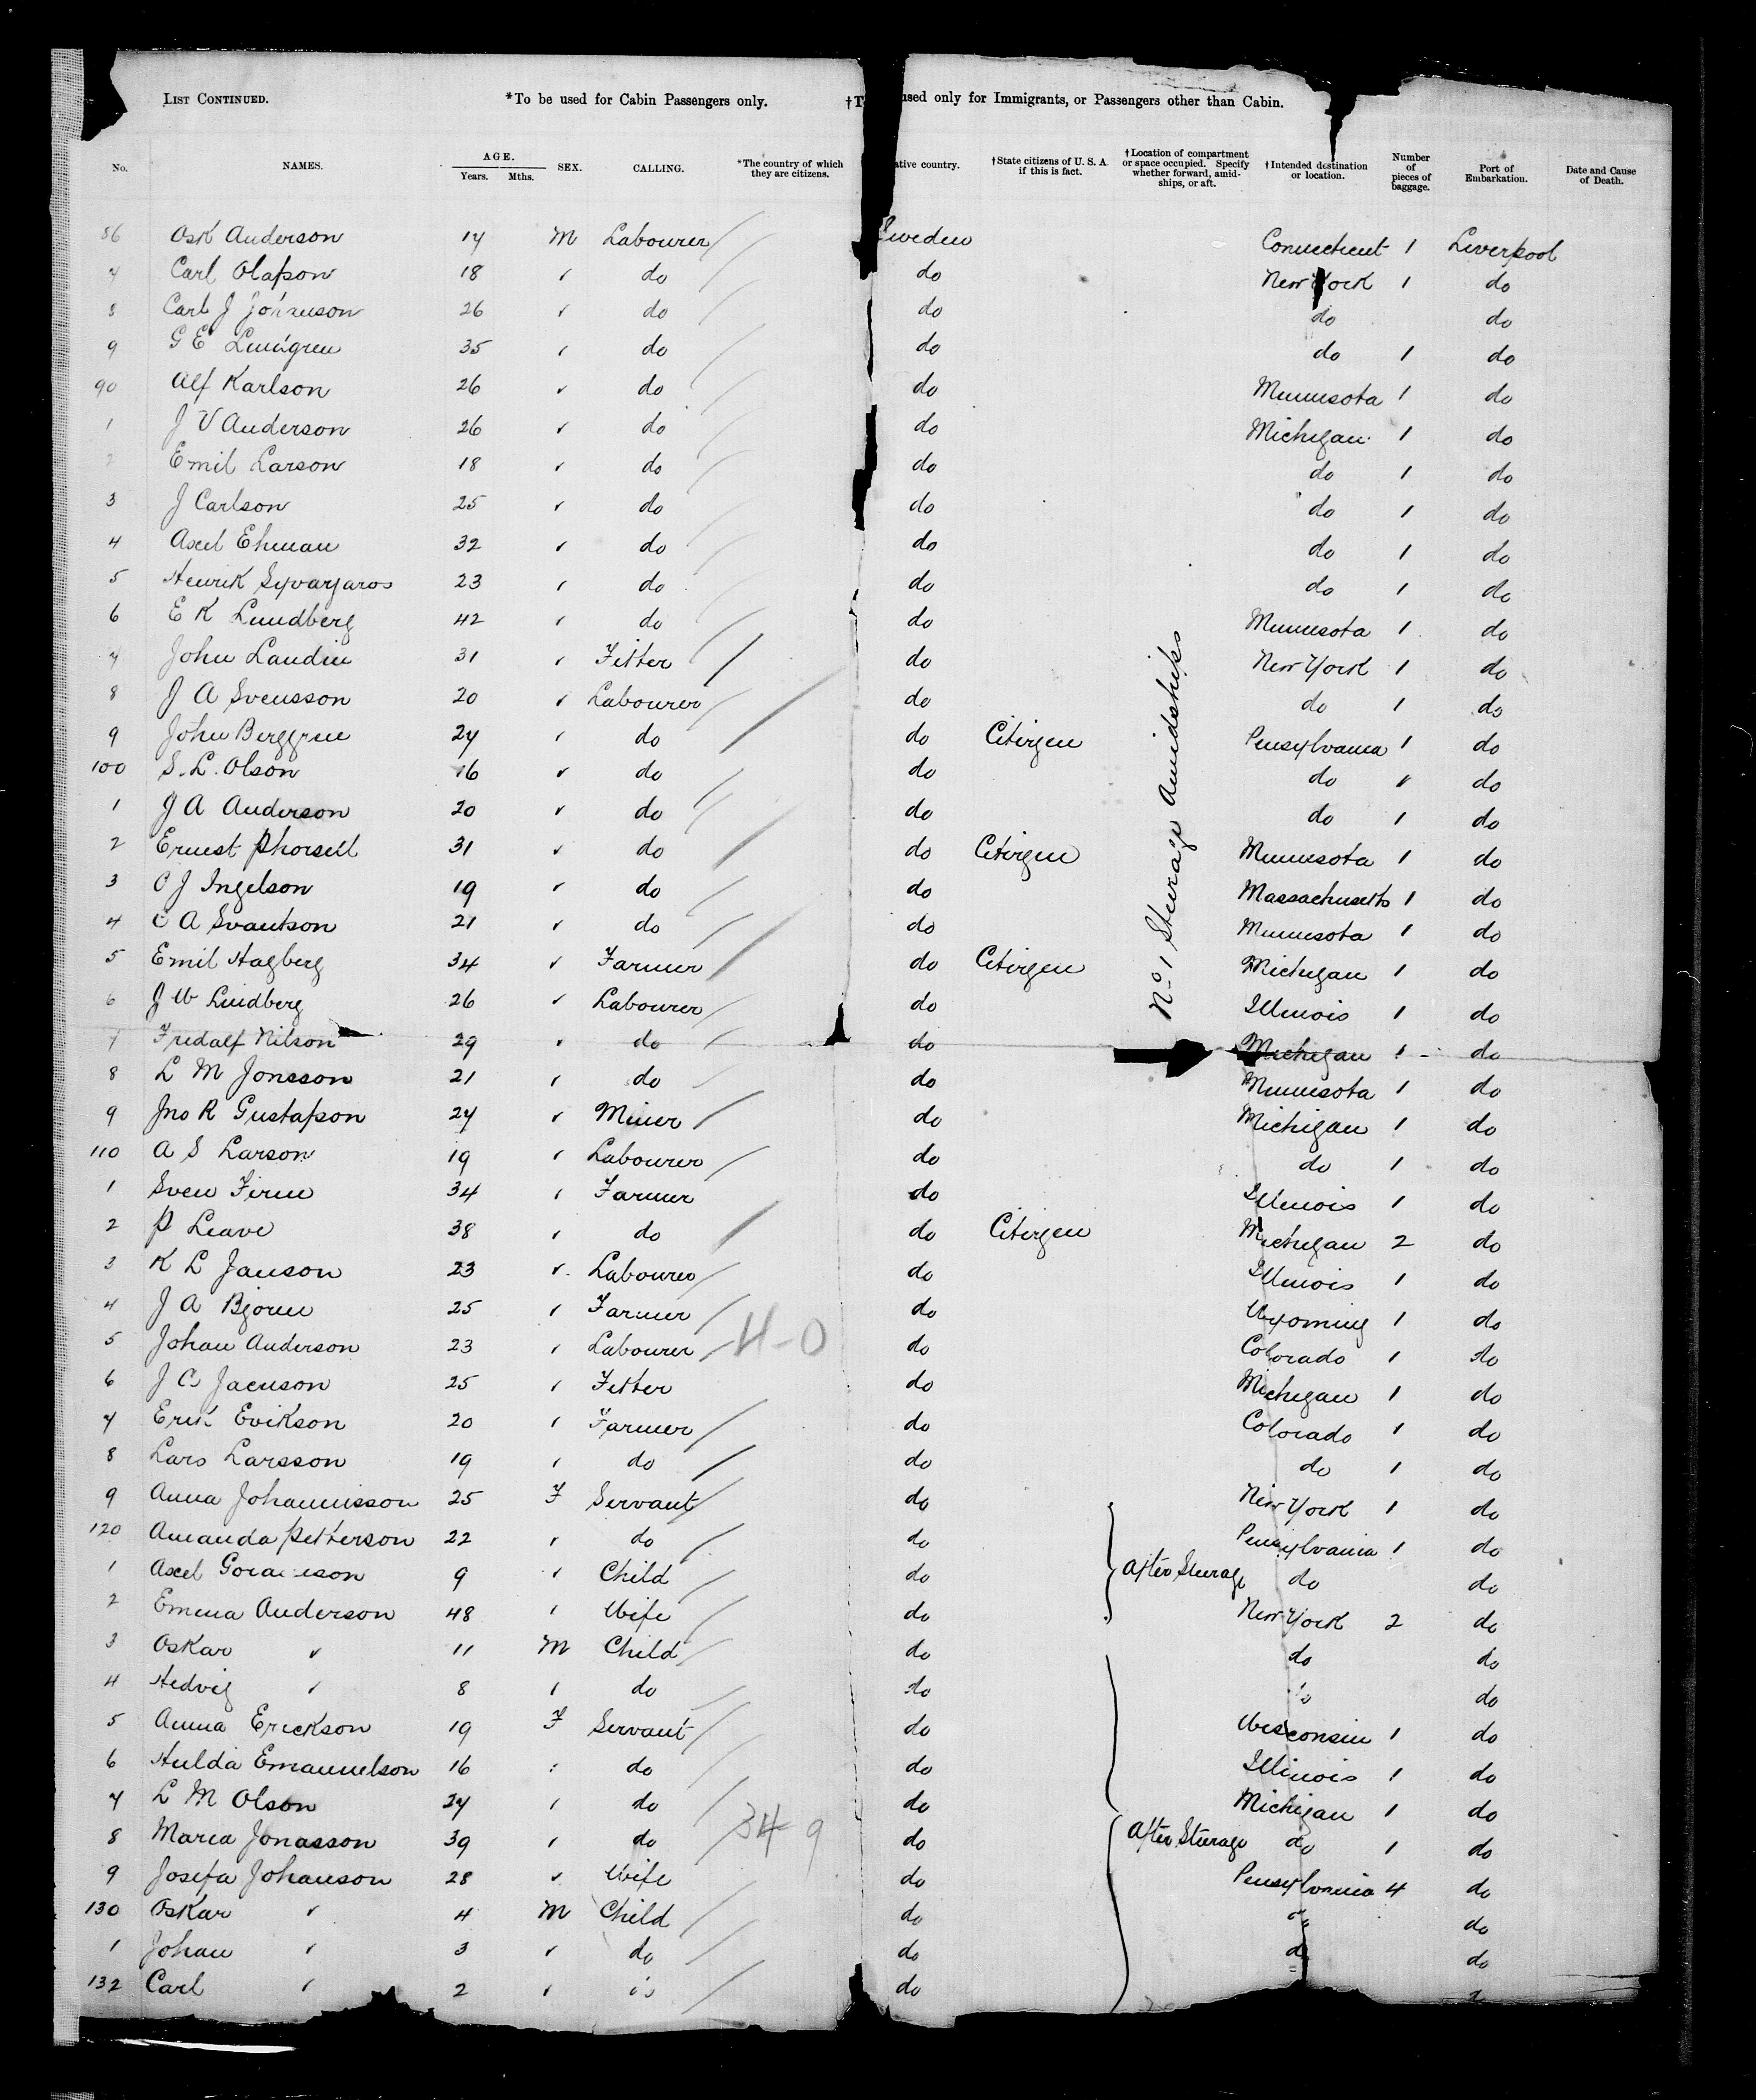 LIST CONTINUED. *To be used for Cabin Passengers only. †T used only for Immigrants, or Passengers other than Cabin.
No. NAMES. AGE. Years. Mths. SEX. CALLING. *The country of which they are citizens. ative country. †State citizens of U. S. A. if this is fact. †Location of compartment or space occupied. Specify whether forward, amidships, or aft. †Intended destination or location. Number of pieces of baggage. Port of Embarkation. Date and Cause of Death.
86 Osk Anderson 17 M Labourer Sweden Connecticut 1 Liverpool
7 Carl Olafson 18 " do do New York 1 do
8 Carl J Johnson 26 " do do do do
9 G E Lundgren 35 " do do do 1 do
90 Alf Karlson 26 " do do Minnesota 1 do
1 J V Anderson 26 " do do Michigan 1 do
2 Emil Larson 18 " do do do 1 do
3 J Carlson 25 " do do do 1 do
4 Axel Ehman 32 " do do do 1 do
5 Henrik 23 " do do do 1 do
6 E K Lundberg 42 " do do Minnesota 1 do
7 John Landin 31 " Fitter do New York 1 do
8 J A Svensson 20 " Labourer do do 1 do
9 John Berggren 27 " do do Citizen Pensylvania 1 do
100 S. L. Olson 16 " do do do " do
1 J A Anderson 20 " do do do 1 do
2 Ernest Phorsell 31 " do do Citizen Minnesota 1 do
3 O J Ingelson 19 " do do Massachusetts 1 do
4 C A Svantson 21 " do do Minnesota 1 do
5 Emil Hagberg 34 " Farmer do Citizen Michigan 1 do
No 1 Steerage Amidships
6 J W Lindberg 26 " Labourer do Illinois 1 do
7 Fridalf Nilson 29 " do do Michigan 1 do
8 L M Jonsson 21 " do do Minnesota 1 do
9 Jno R Gustafson 27 " Miner do Michigan 1 do
110 A S Larson 19 " Labourer do do 1 do
1 Sven Firm 34 " Farmer do Illinois 1 do
2 P Leave 38 " do do Citizen Michigan 2 do
3 K L Janson 23 " Labourer do Illinois 1 do
4 J A Bjorn 25 " Farmer do Wyoming 1 do
5 Johan Anderson 23 " Labourer 4-0 do Colorado 1 do
6 J C Jacuson 25 " Fitter do Michigan 1 do
7 Erik Erikson 20 " Farmer do Colorado 1 do
8 Lars Larsson 19 " do do do 1 do
9 Anna Johannisson 25 F Servant do New York 1 do
120 Amanda Petterson 22 " do do Pensylvania 1 do
1 Axel 9 " Child do After Steerage do do
2 Emma Anderson 48 " Wife do New York 2 do
3 Oskar " 11 M Child do do do
4 Hedvig " 8 " do do do do
5 Anna Erickson 19 F Servant do Wisconsin 1 do
6 Hulda Emanuelson 16 " do do Illinois 1 do
7 L M Olson 27 " do do Michigan 1 do
8 Maria Jonasson 39 " do 34 9 do After Steerage do 1 do
9 Josefa Johanson 28 " Wife do Pensylvania 4 do
130 Oskar " 4 M Child do do do
1 Johan " 3 " do do do do
132 Carl " 2 " do do